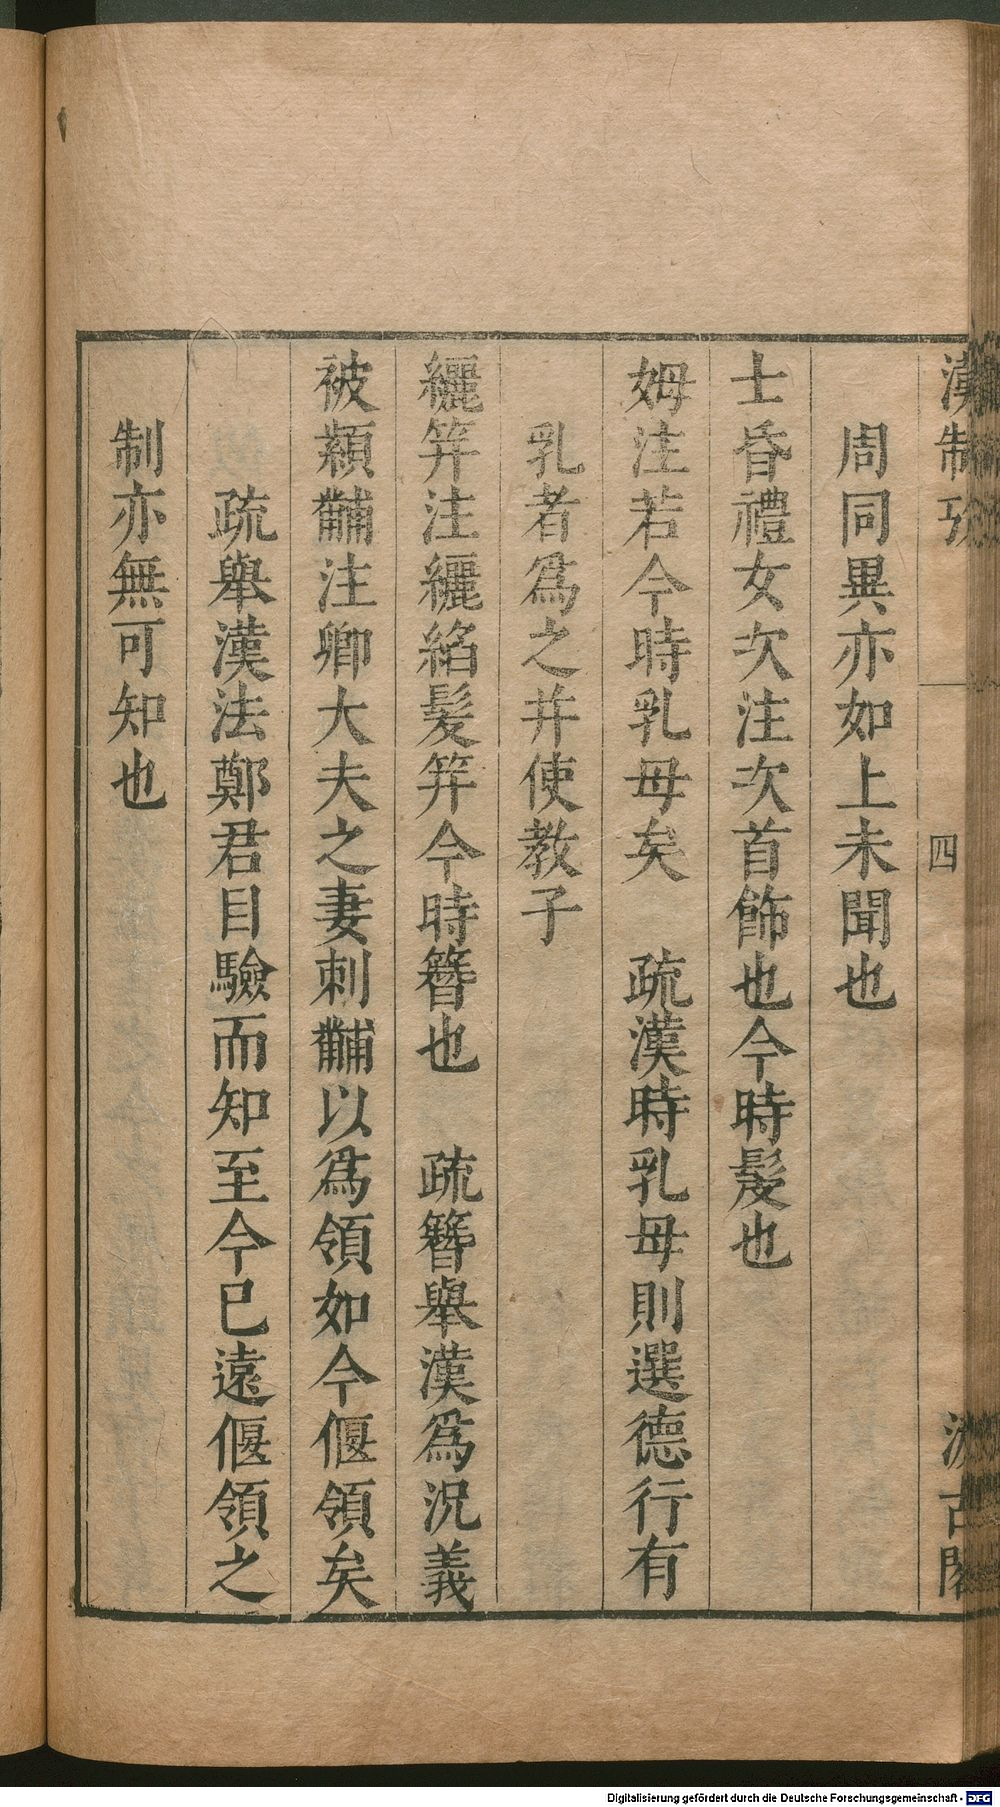 漢制攷
四
汲古閣
周同異亦如上未聞也
士昏禮女次注次首飾也今時髲也
姆注若今時乳母矣　疏漢時乳母則選德行有
乳者爲之并使教子
纚笄注纚縚髮笄今時簪也　疏簪舉漢爲況義
被顈黼注卿大夫之妻刺黼以爲領如今偃領矣
疏舉漢法鄭君目驗而知至今已遠偃領之
制亦無可知也
Digitalisierung gefördert durch die Deutsche Forschungsgemeinschaft - DFG